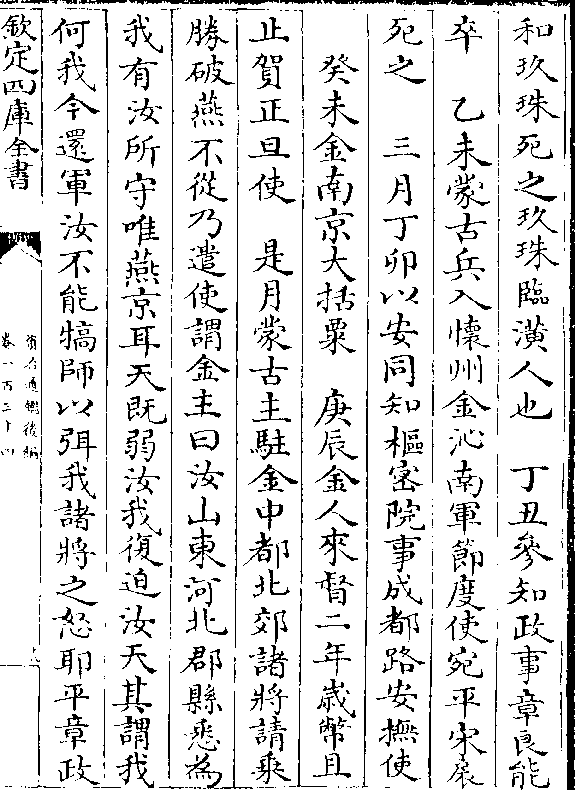 和玖珠死之玖珠臨潢人也　丁丑參知政事章良能
卒　乙未蒙古兵入懷州金沁南軍節度使宛平宋扆
死之　三月丁卯以安同知樞密院事成都路安撫使
癸未金南京大括粟　庚辰金人來督二年歲幣且
止賀正旦使　是月蒙古主駐金中都北郊諸將請乘
勝破燕不從乃遣使謂金主曰汝山東河北郡縣悉為
我有汝所守唯燕京耳天既弱汝我復迫汝天其謂我
何我今還軍汝不能犒師以弭我諸將之怒耶平章政
欽定四庫全書
資治通鑑後編
卷一百三十四